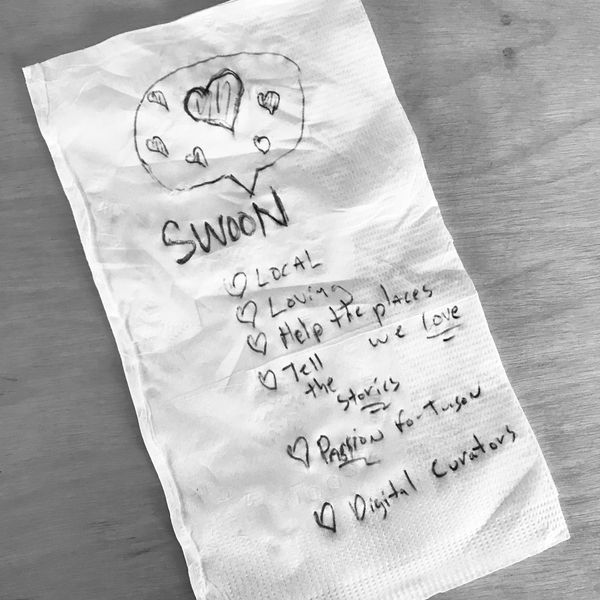 SWOON
LOCAL
Loving
Help the places
we love
Tell
the
stories
Passion for Tucson
Digital Curators